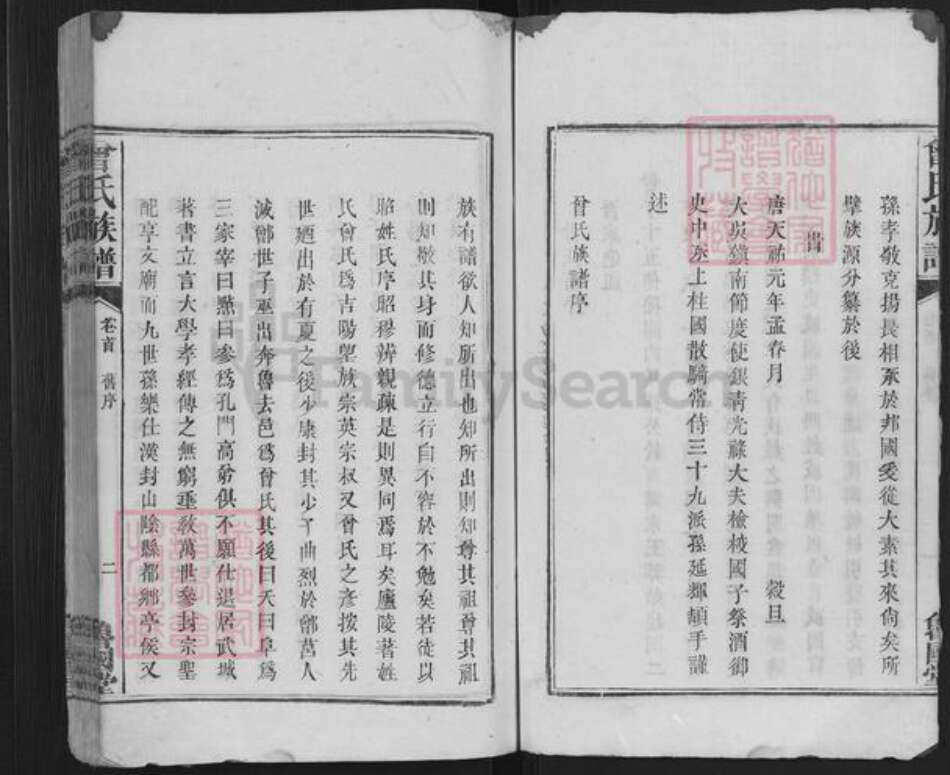 孫孝敬克揚長相承於邦國爰從大素其來尙矣所
擘族源分纂於後
旹
唐天祐元年孟春月　穀旦
大吳鎭南節度使銀青光祿大夫檢校國子祭酒御
史中丞上柱國散騎常侍三十九派孫延輝頓手謹
述
曾氏族譜序
族有譜欲人知所出也知所出則知尊其祖尊其祖
則知敬其身而修德立行自不容於不勉矣若徒以
昭姓氏序昭穆辨親疎是則異同焉耳矣廬陵著姓
氏曾氏爲吉陽望族宗英宗叔又曾氏之彥按其先
世廼出於有夏之後少康封其少子曲烈於鄫莒人
滅鄫世子巫出奔魯去邑爲曾氏其後曰夭曰阜爲
三家宰曰㸃曰參爲孔門高弟俱不願仕退居武城
著書立言大學孝經傳之無窮垂敎萬世參封宗聖
配享文廟而九世孫樂仕漢封山陰縣都鄉亭侯又
曾氏族譜
卷首
舊序
二
魯國堂
曾氏族譜
魯國堂
FamilySearch